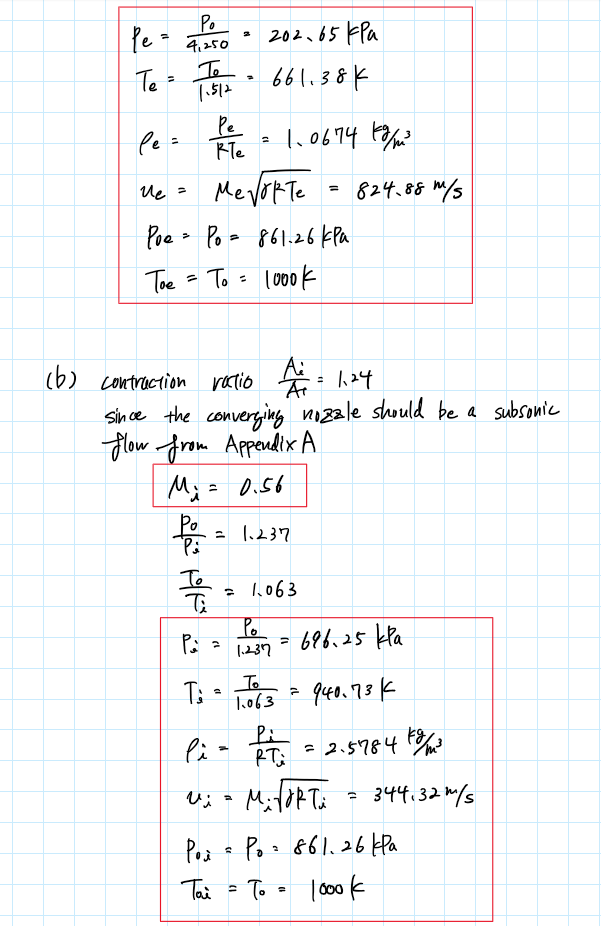 Pe = Po/4.250 = 202.65 kPa
Te = To/1.512 = 661.38 K
ρe = Pe/RTe = 1.0674 kg/m³
ue = Me√γRTe = 824.88 m/s
Poe = Po = 861.26 kPa
Toe = To = 1000 K
(b) contraction ratio Ai/At = 1.24
since the converging nozzle should be a subsonic
flow from Appendix A
Mi = 0.56
Po/Pi = 1.237
To/Ti = 1.063
Pi = Po/1.237 = 696.25 kPa
Ti = To/1.063 = 940.73 K
ρi = Pi/RTi = 2.5784 kg/m³
ui = Mi√γRTi = 344.32 m/s
Poi = Po = 861.26 kPa
Toi = To = 1000 K